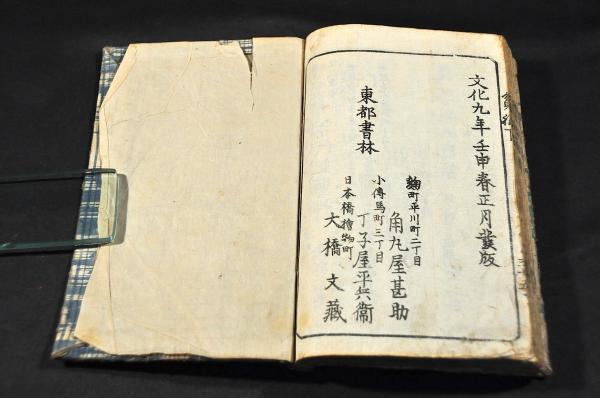 文化九年壬申春正月發版
東都書林
麹町平川町二丁目
角丸屋甚助
小傳馬町三丁目
丁子屋平兵衞
日本橋檜物町
大橋文藏